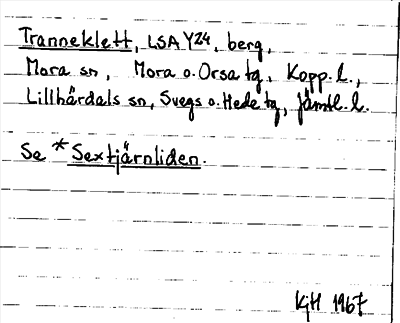 Tranneklett, LSA Y24, berg,
Mora sn, Mora o. Orsa tg, Kopp. l.,
Lillhärdals sn, Svegs o. Hede tg, Jämtl. l.
Se *Sextjärnliden.
KjH 1967